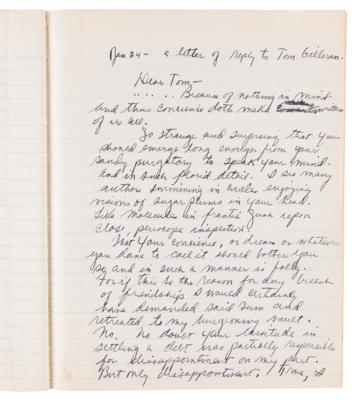 Jan 24 - a letter of reply to Tom Gilleran.
Dear Tom -
. . . . . Because of nothing in mind.
And thus conscience doth make writers
of us all.
So strange and surprising that you
should emerge long enough from your
sandy purgatory to speak your mind.
And in such florid detail. I see many
authors swimming in circles enjoying
visions of sugar plums in your head.
Like molecules in frantic upon
close, periscope inspection.
That your conscience, or dream or whatever
you dare to call it should bother you
so and in such a manner is folly.
For if this be the reason for any breech
of friendship I would certainly
have demanded said sum and
retreated to my burgeoning vault.
No, no doubt your lassitude in
settling a debt was partially responsible
for disappointment on my part.
But only disappointment. True, I